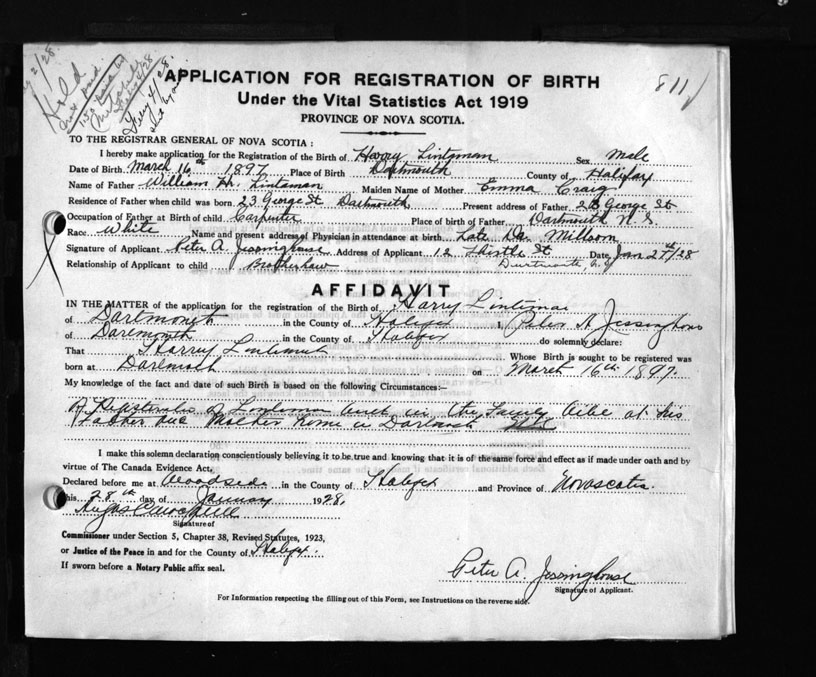 2/28.
Hold
811
APPLICATION FOR REGISTRATION OF BIRTH
Under the Vital Statistics Act 1919
PROVINCE OF NOVA SCOTIA.
TO THE REGISTRAR GENERAL OF NOVA SCOTIA:
I hereby make application for the Registration of the Birth of Harry Lintaman Sex Male
Date of Birth March 16th 1897 Place of Birth Dartmouth County of Halifax
Name of Father William Hr. Lintaman Maiden Name of Mother Emma Craig
Residence of Father when child was born 23 George St Dartmouth Present address of Father 23 George St
Occupation of Father at Birth of child Carpenter Place of birth of Father Dartmouth N.S
Race White Name and present address of Physician in attendance at birth Late Dr. Millsom
Signature of Applicant Peter A. Jessinghouse Address of Applicant 12 St Date Jan 27th/28
Relationship of Applicant to child
AFFIDAVIT
IN THE MATTER of the application for the registration of the Birth of Harry
of Dartmouth in the County of Halifax I, Peter A. Jessinghouse
of Dartmouth in the County of Halifax do solemnly declare:
That Harry Whose Birth is sought to be registered was
born at Dartmouth on March 16th 1897.
My knowledge of the fact and date of such Birth is based on the following Circumstances:—
in the Family at his
Mother Home in Dartmouth
I make this solemn declaration conscientiously believing it to be true and knowing that it is of the same force and effect as if made under oath and by
virtue of The Canada Evidence Act.
Declared before me at Woodside in the County of Halifax and Province of Nova Scotia
this 28th day of January 1928.
Signature of
Commissioner under Section 5, Chapter 38, Revised Statutes, 1923,
or Justice of the Peace in and for the County of Halifax.
If sworn before a Notary Public affix seal.
Peter A. Jessinghouse
Signature of Applicant.
For Information respecting the filling out of this Form, see Instructions on the reverse side.